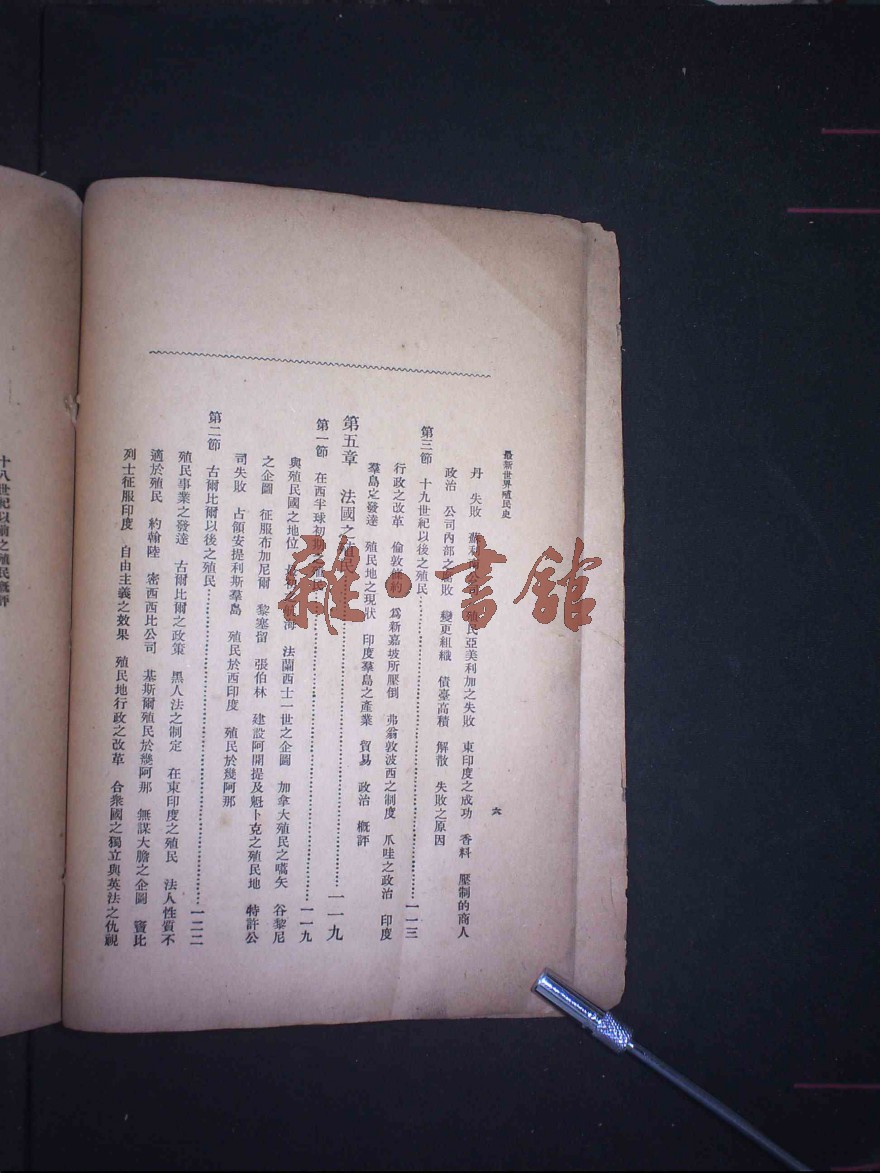 最新世界殖民史
六
丹 失敗 蘇利南公司 殖民亞美利加之失敗 東印度之成功 香料 壓制的商人
政治 公司內部之腐敗 變更組織 債臺高積 解散 失敗之原因
第三節 十九世紀以後之殖民⋯⋯一一三
行政之改革 倫敦條約 爲新嘉坡所壓倒 弗翁敦波西之制度 爪哇之政治 印度
羣島之發達 殖民地之現狀 印度羣島之產業 貿易 政治 概評
第五章 法國之殖民⋯⋯一一九
第一節 在西半球初期之殖民⋯⋯一一九
與殖民國之地位 航海 法蘭西士一世之企圖 加拿大殖民之嚆矢 谷黎尼
之企圖 征服布加尼爾 黎塞留 張伯林 建設阿開提及魁卜克之殖民地 特許公
司失敗 占領安提利斯羣島 殖民於西印度 殖民於幾阿那
第二節 古爾比爾以後之殖民⋯⋯一二二
殖民事業之發達 古爾比爾之政策 黑人法之制定 在東印度之殖民 法人性質不
適於殖民 約翰陸 密西西比公司 基斯爾殖民於幾阿那 無謀大膽之企圖 竇比
列士征服印度 自由主義之效果 殖民地行政之改革 合衆國之獨立與英法之仇視
十八世紀以前之殖民概評
雜·書館